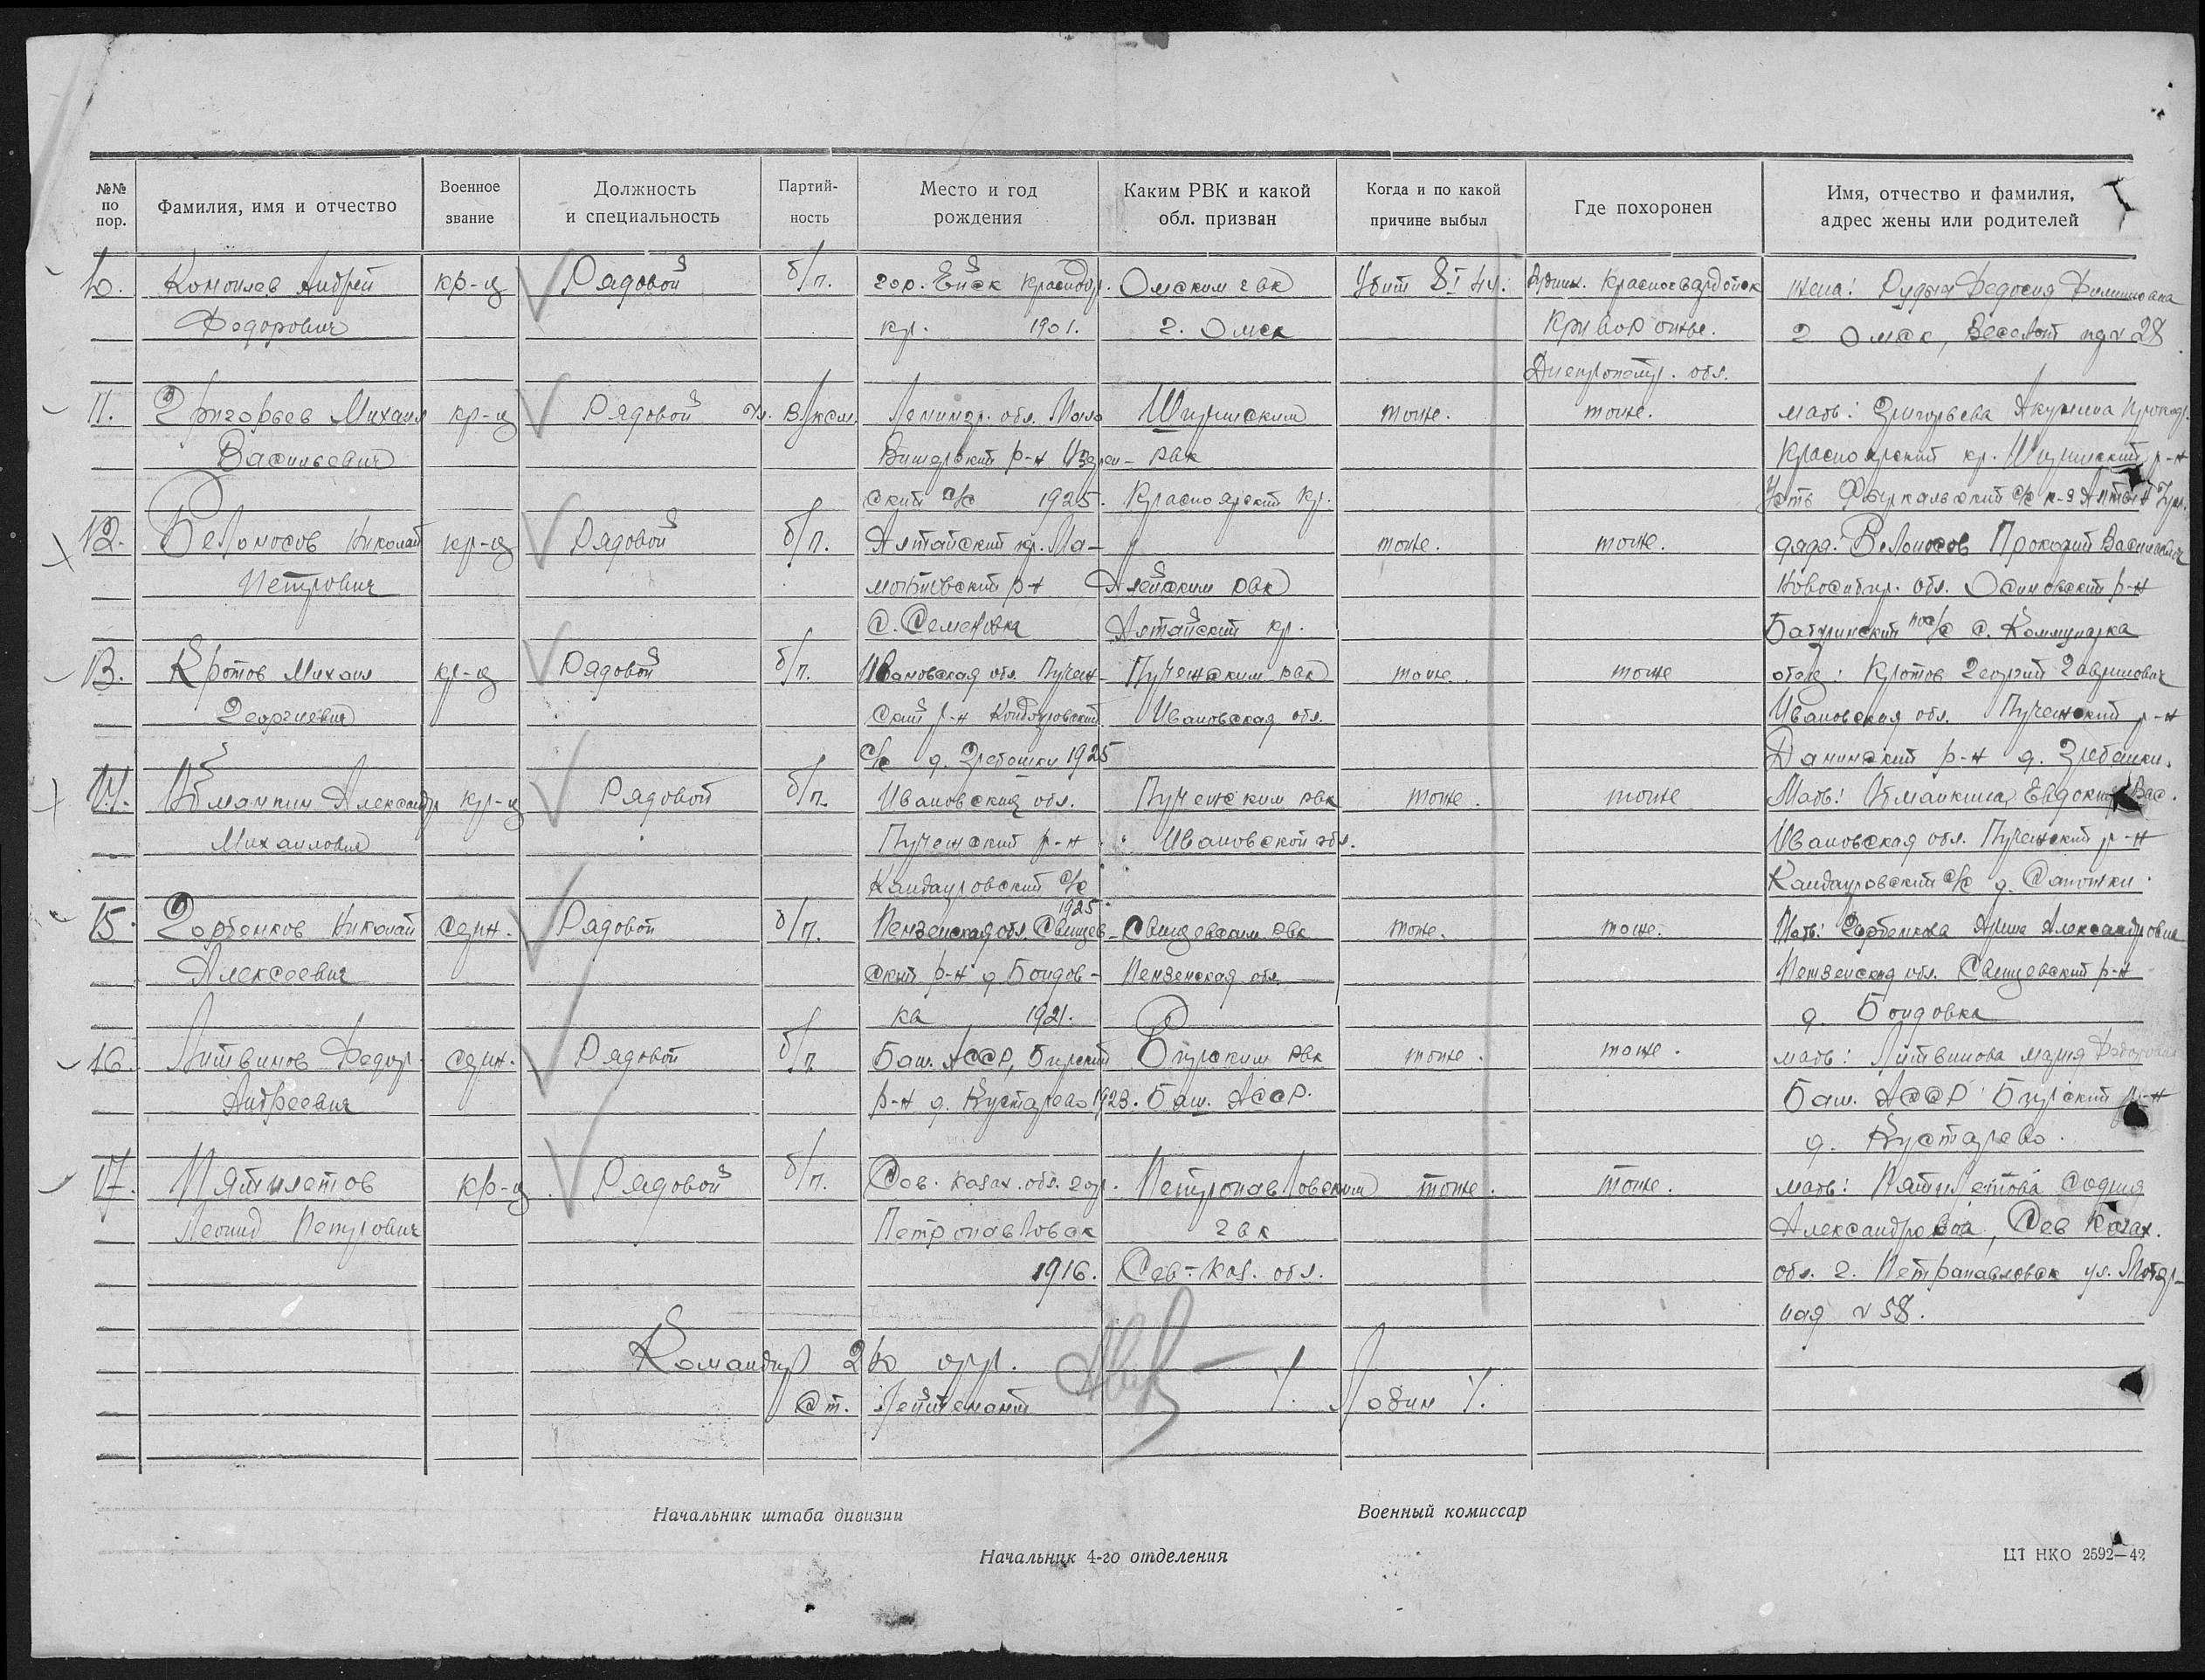 №№ по пор. Фамилия, имя и отчество Военное звание Должность и специальность Партийность Место и год рождения Каким РВК и какой обл. призван Когда и по какой причине выбыл Где похоронен Имя, отчество и фамилия, адрес жены или родителей
10. Андрей кр-ц Рядовой б/п. гор. Ейск Краснодар. Омским гвк Убит 8 I 44. Красногвардейск жена: Федосия
Федорович кр. 1901. г. Омск Криворожье. г. Омск, 28
Днепропетр. обл.
11. Григорьев Михаил кр-ц Рядовой чл. ВЛКСМ Ленингр. обл. Мало Ширинским тоже. тоже. мать: Григорьева Акулина
Васильевич Вишерский р-н рвк Красноярский кр. Ширинский р-н
ский с/с 1925. Красноярский кр. Усть Фыркальский с/с к-з
12. Белоносов Николай кр-ц Рядовой б/п. Алтайский кр. Ма- тоже. тоже. дядя. Белоносов Прокопий Васильевич
Петрович монтовский р-н Алейским рвк Новосибир. обл. р-н
с. Семеновка Алтайский кр. Батуринский пос/с с. Коммунарка
13. Кротов Михаил кр-ц Рядовой б/п. Ивановская обл. Пучеж- Пучежским рвк тоже. тоже отец: Кротов Георгий Гаврилович
Георгиевич ский р-н Кандауровский Ивановская обл. Ивановская обл. Пучежский р-н
с/с д. Гребешки 1925 р-н д. Гребешки.
14. Александр кр-ц Рядовой б/п. Ивановская обл. Пучежским рвк тоже. тоже Мать: Евдокия Вас.
Михаилович Пучежский р-н Ивановской обл. Ивановская обл. Пучежский р-н
Кандауровский с/с 1925. Кандауровский с/с д.
15. Горбенков Николай серж. Рядовой б/п. Пензенская обл. Свищев- Свищевским рвк тоже. тоже. Мать: Горбенкова Александровна
Алексеевич ский р-н д. Бондов- Пензенская обл. Пензенская обл. Свищевский р-н
ка 1921. д. Бондовка
16. Литвинов Федор серж. Рядовой б/п Баш. АССР, Бирский Бирским рвк тоже. тоже. мать: Литвинова Мария
Андреевич р-н д. Кустарево 1923. Баш. АССР. Баш. АССР Бирский р-н
д. Кустарево.
17. Пятилетов кр-ц. Рядовой б/п. Сев. Казах. обл. гор. Петропавловским тоже. тоже. мать: Пятилетова София
Леонид Петрович Петропавловск гвк Александровна, Сев Казах.
1916. Сев-Каз. обл. обл. г. Петрапавловск ул.
ная № 58.
Командир
Ст. Лейтенант /. Лобин /.
Начальник штаба дивизии Военный комиссар
Начальник 4-го отделения ЦТ НКО 2592—42